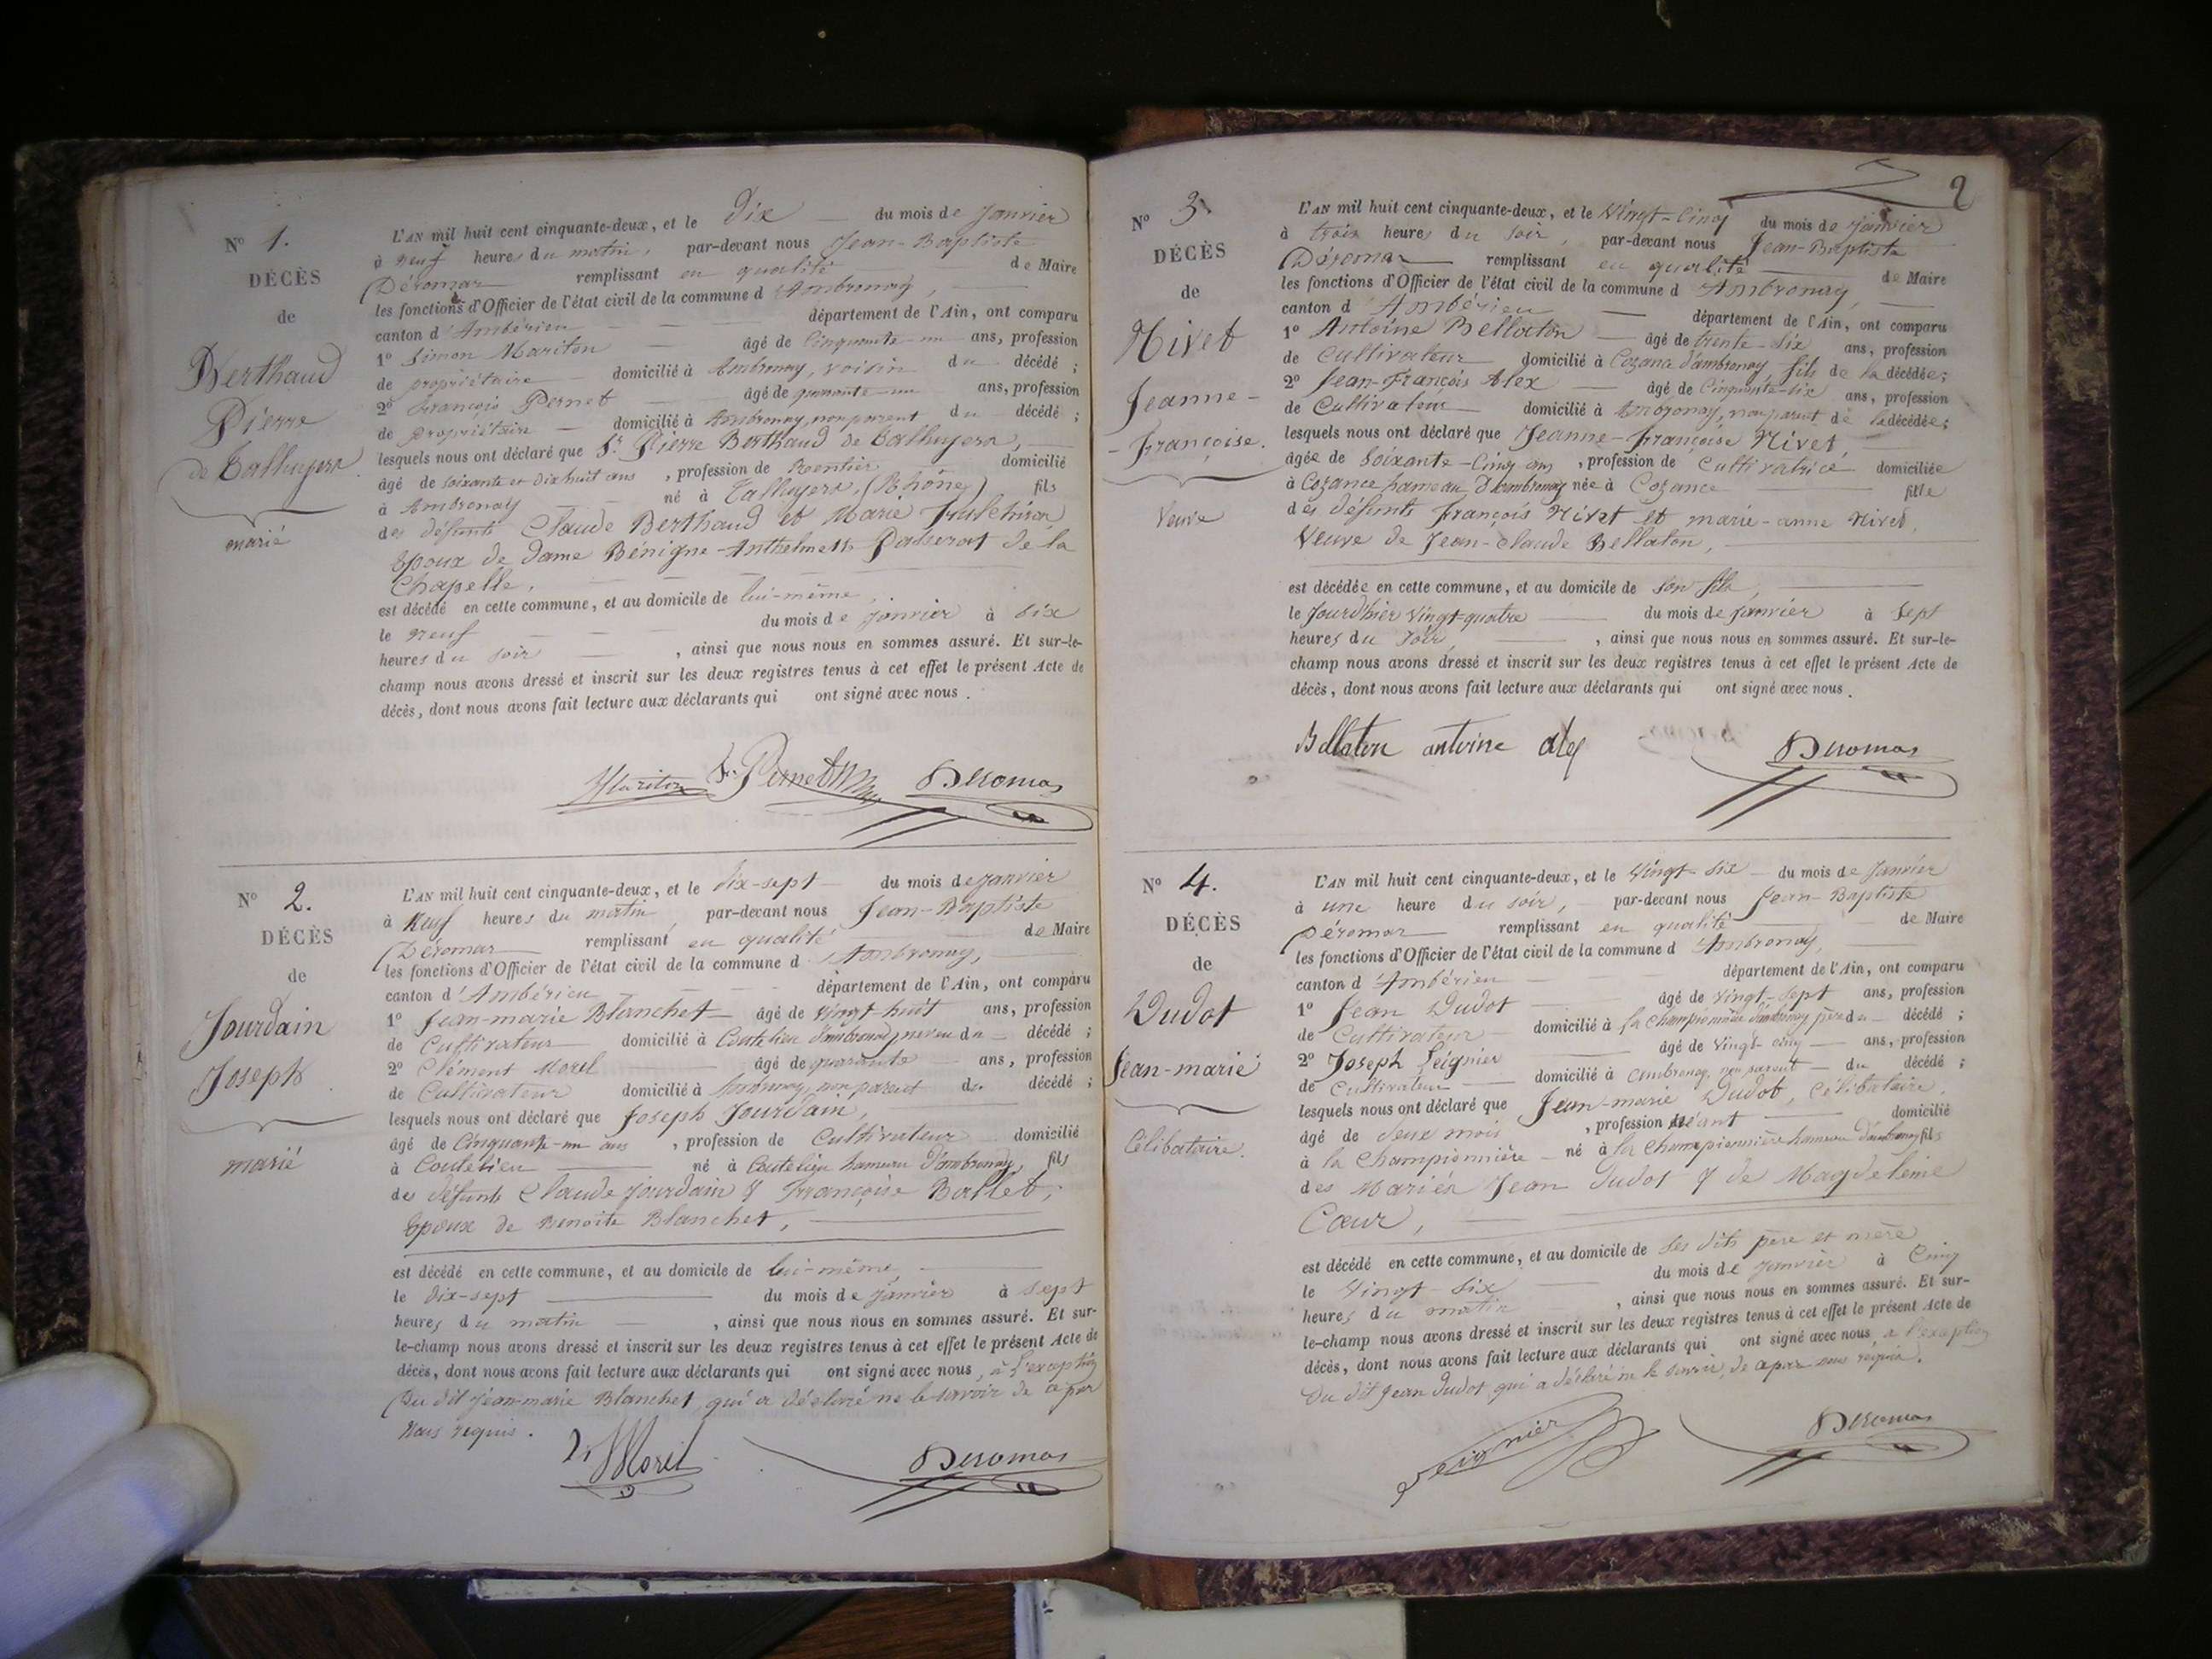 N° 1.
DÉCÈS
de
Berthaud
Pierre
de Talluyers
marié
L'AN mil huit cent cinquante-deux, et le Dix du mois de Janvier
à neuf heures du matin, par-devant nous Jean-Baptiste
Déromas remplissant en qualité de Maire
les fonctions d'Officier de l'état civil de la commune d'Ambronay,
canton d'Ambérieu département de l'Ain, ont comparu
1° Simon Mariton âgé de Cinquante-un ans, profession
de propriétaire domicilié à Ambronay, voisin du décédé ;
2° François Pernet âgé de quarante-un ans, profession
de propriétaire domicilié à Ambronay, non parent du décédé ;
lesquels nous ont déclaré que Sr. Pierre Berthaud de Talluyers,
âgé de soixante et dix huit ans, profession de Rentier domicilié
à Ambronay né à Talluyers, (Rhône) fils
des défunts Claude Berthaud et Marie
Epoux de Dame Bénigne-Anthelmette Passerat de la
Chapelle,
est décédé en cette commune, et au domicile de lui-même,
le neuf du mois de janvier à six
heures du soir, ainsi que nous nous en sommes assuré. Et sur-le-
champ nous avons dressé et inscrit sur les deux registres tenus à cet effet le présent Acte de
décès, dont nous avons fait lecture aux déclarants qui ont signé avec nous.
Mariton Fs. Pernet Deromas
N° 2.
DÉCÈS
de
Jourdain
Joseph
marié
L'AN mil huit cent cinquante-deux, et le dix-sept du mois de janvier
à Neuf heures du matin, par-devant nous Jean-Baptiste
Déromas remplissant en qualité de Maire
les fonctions d'Officier de l'état civil de la commune d'Ambronay,
canton d'Ambérieu département de l'Ain, ont comparu
1° Jean-marie Blanchet âgé de Vingt-huit ans, profession
de Cultivateur domicilié à Coutelieu d'ambronay, neveu du décédé ;
2° Clément Morel âgé de quarante ans, profession
de Cultivateur domicilié à Ambronay, non parent du décédé ;
lesquels nous ont déclaré que Joseph Jourdain,
âgé de Cinquante-un ans, profession de Cultivateur domicilié
à Coutelieu né à Coutelieu hameau d'ambronay, fils
des défunts Claude Jourdain & Françoise Ballet,
Epoux de Benoite Blanchet,
est décédé en cette commune, et au domicile de lui-même,
le dix-sept du mois de janvier à sept
heures du matin, ainsi que nous nous en sommes assuré. Et sur-
le-champ nous avons dressé et inscrit sur les deux registres tenus à cet effet le présent Acte de
décès, dont nous avons fait lecture aux déclarants qui ont signé avec nous, à l'exception
Du dit Jean-marie Blanchet, qui a déclaré ne le savoir de ce par
Nous requis.
Morel Deromas
2
N° 3.
DÉCÈS
de
Nivet
Jeanne-
-Françoise.
Veuve
L'AN mil huit cent cinquante-deux, et le Vingt-Cinq du mois de Janvier
à trois heures du soir, par-devant nous Jean-Baptiste
Déromas remplissant en qualité de Maire
les fonctions d'Officier de l'état civil de la commune d'Ambronay,
canton d'Ambérieu département de l'Ain, ont comparu
1° Antoine Bellaton âgé de trente-six ans, profession
de Cultivateur domicilié à Cozance d'ambronay, fils de la décédée ;
2° Jean-François Alex âgé de Cinquante-six ans, profession
de Cultivateur domicilié à Ambronay, non parent de la décédée ;
lesquels nous ont déclaré que Jeanne-Françoise Nivet,
âgée de Soixante-Cinq ans, profession de Cultivatrice domiciliée
à Cozance hameau d'ambronay née à Cozance fille
des défunts François Nivet et marie-anne Nivet,
Veuve de Jean-Claude Bellaton,
est décédée en cette commune, et au domicile de Son fils,
le Jourd'hier Vingt-quatre du mois de janvier à Sept
heures du soir, ainsi que nous nous en sommes assuré. Et sur-le-
champ nous avons dressé et inscrit sur les deux registres tenus à cet effet le présent Acte de
décès, dont nous avons fait lecture aux déclarants qui ont signé avec nous.
Bellaton antoine alex Deromas
N° 4.
DÉCÈS
de
Dudot
Jean-marie
Célibataire.
L'AN mil huit cent cinquante-deux, et le Vingt-Six du mois de Janvier
à une heure du soir, par-devant nous Jean-Baptiste
Déromas remplissant en qualité de Maire
les fonctions d'Officier de l'état civil de la commune d'Ambronay,
canton d'Ambérieu département de l'Ain, ont comparu
1° Jean Dudot âgé de Vingt-Sept ans, profession
de Cultivateur domicilié à la Championnière d'ambronay père du décédé ;
2° Joseph Seignier âgé de Vingt-cinq ans, profession
de Cultivateur domicilié à ambronay, non parent du décédé ;
lesquels nous ont déclaré que Jean-marie Dudot, Célibataire,
âgé de mois, profession néant domicilié
à la Championnière né à la Championnière hameau d'ambronay fils
des Mariés Jean Dudot & de Magdeleine
Cœur,
est décédé en cette commune, et au domicile de Ses dits père et mère
le Vingt-Six du mois de janvier à Cinq
heures du matin, ainsi que nous nous en sommes assuré. Et sur-
le-champ nous avons dressé et inscrit sur les deux registres tenus à cet effet le présent Acte de
décès, dont nous avons fait lecture aux déclarants qui ont signé avec nous, a l'exception
Du dit Jean Dudot, qui a déclaré ne le savoir, de ce par nous requis.
Seignier Deromas